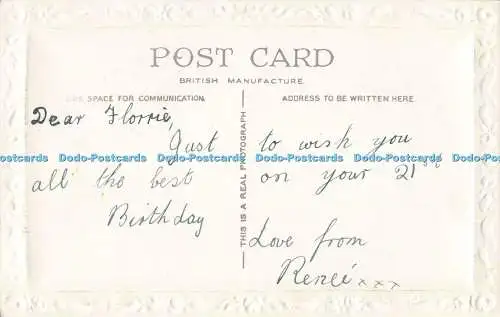 POST CARD
BRITISH MANUFACTURE.
SPACE FOR COMMUNICATION
ADDRESS TO BE WRITTEN HERE
THIS IS A REAL PHOTOGRAPH
Dear Florrie,
Just to wish you
Dodo-Postcards Dodo-Postcards Dodo-Postcards Dodo-Postcards Dodo-Postcards
all the best on your 21st
Birthday
Love from
Reneé xxx